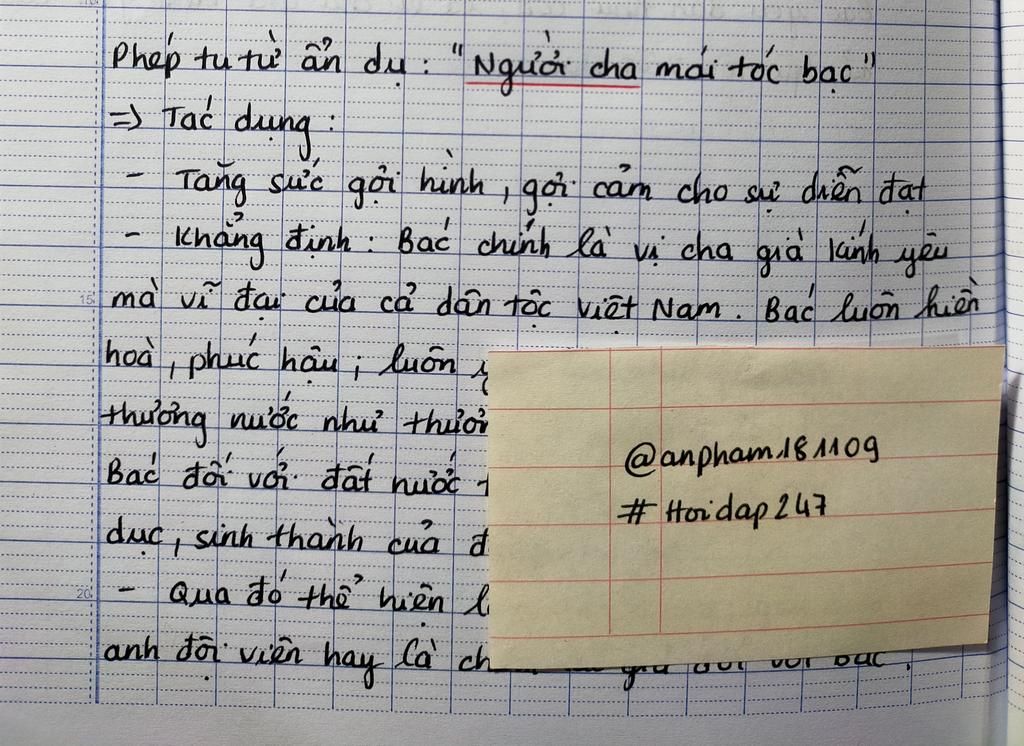 Phép tu từ ẩn dụ : "Người cha mái tóc bạc"
=> Tác dụng :
- Tăng sức gợi hình, gợi cảm cho sự diễn đạt
- Khẳng định : Bác chính là vị cha già kính yêu
mà vĩ đại của cả dân tộc Việt Nam. Bác luôn hiền
hoà, phúc hậu ; luôn
thương nước như
Bác đối với đất nước
dục, sinh thành của
- Qua đó thể hiện
anh đội viên hay là đối với Bác.
@anpham181109
# Hoidap247
15
20